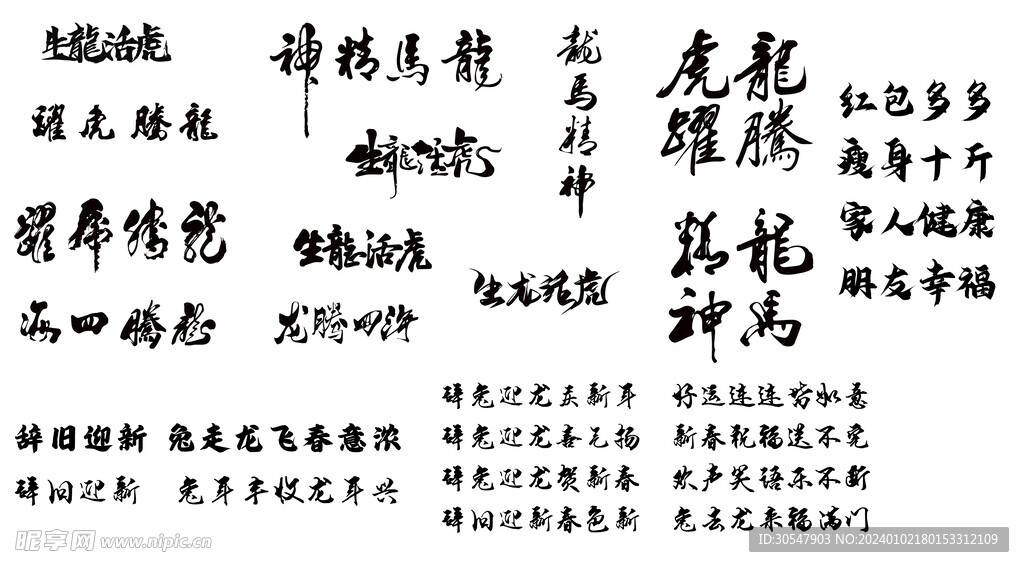 生龍活虎
躍虎騰龍
躍虎騰龍
海四騰龍
神精馬龍
生龍活虎
生龍活虎
龙騰四海
龍馬精神
生龙活虎
虎龍
躍騰
精龍
神馬
红包多多
瘦身十斤
家人健康
朋友幸福
辞旧迎新 兔走龙飞春意浓
辞旧迎新 兔年丰收龙年兴
辞兔迎龙庆新年 好运连连皆如意
辞兔迎龙喜气扬 新春祝福送不完
辞兔迎龙贺新春 欢声笑语乐不断
辞旧迎新春色新 兔去龙来福满门
昵享网 www.nipic.cn
ID:30547903 NO:20240102180153312109